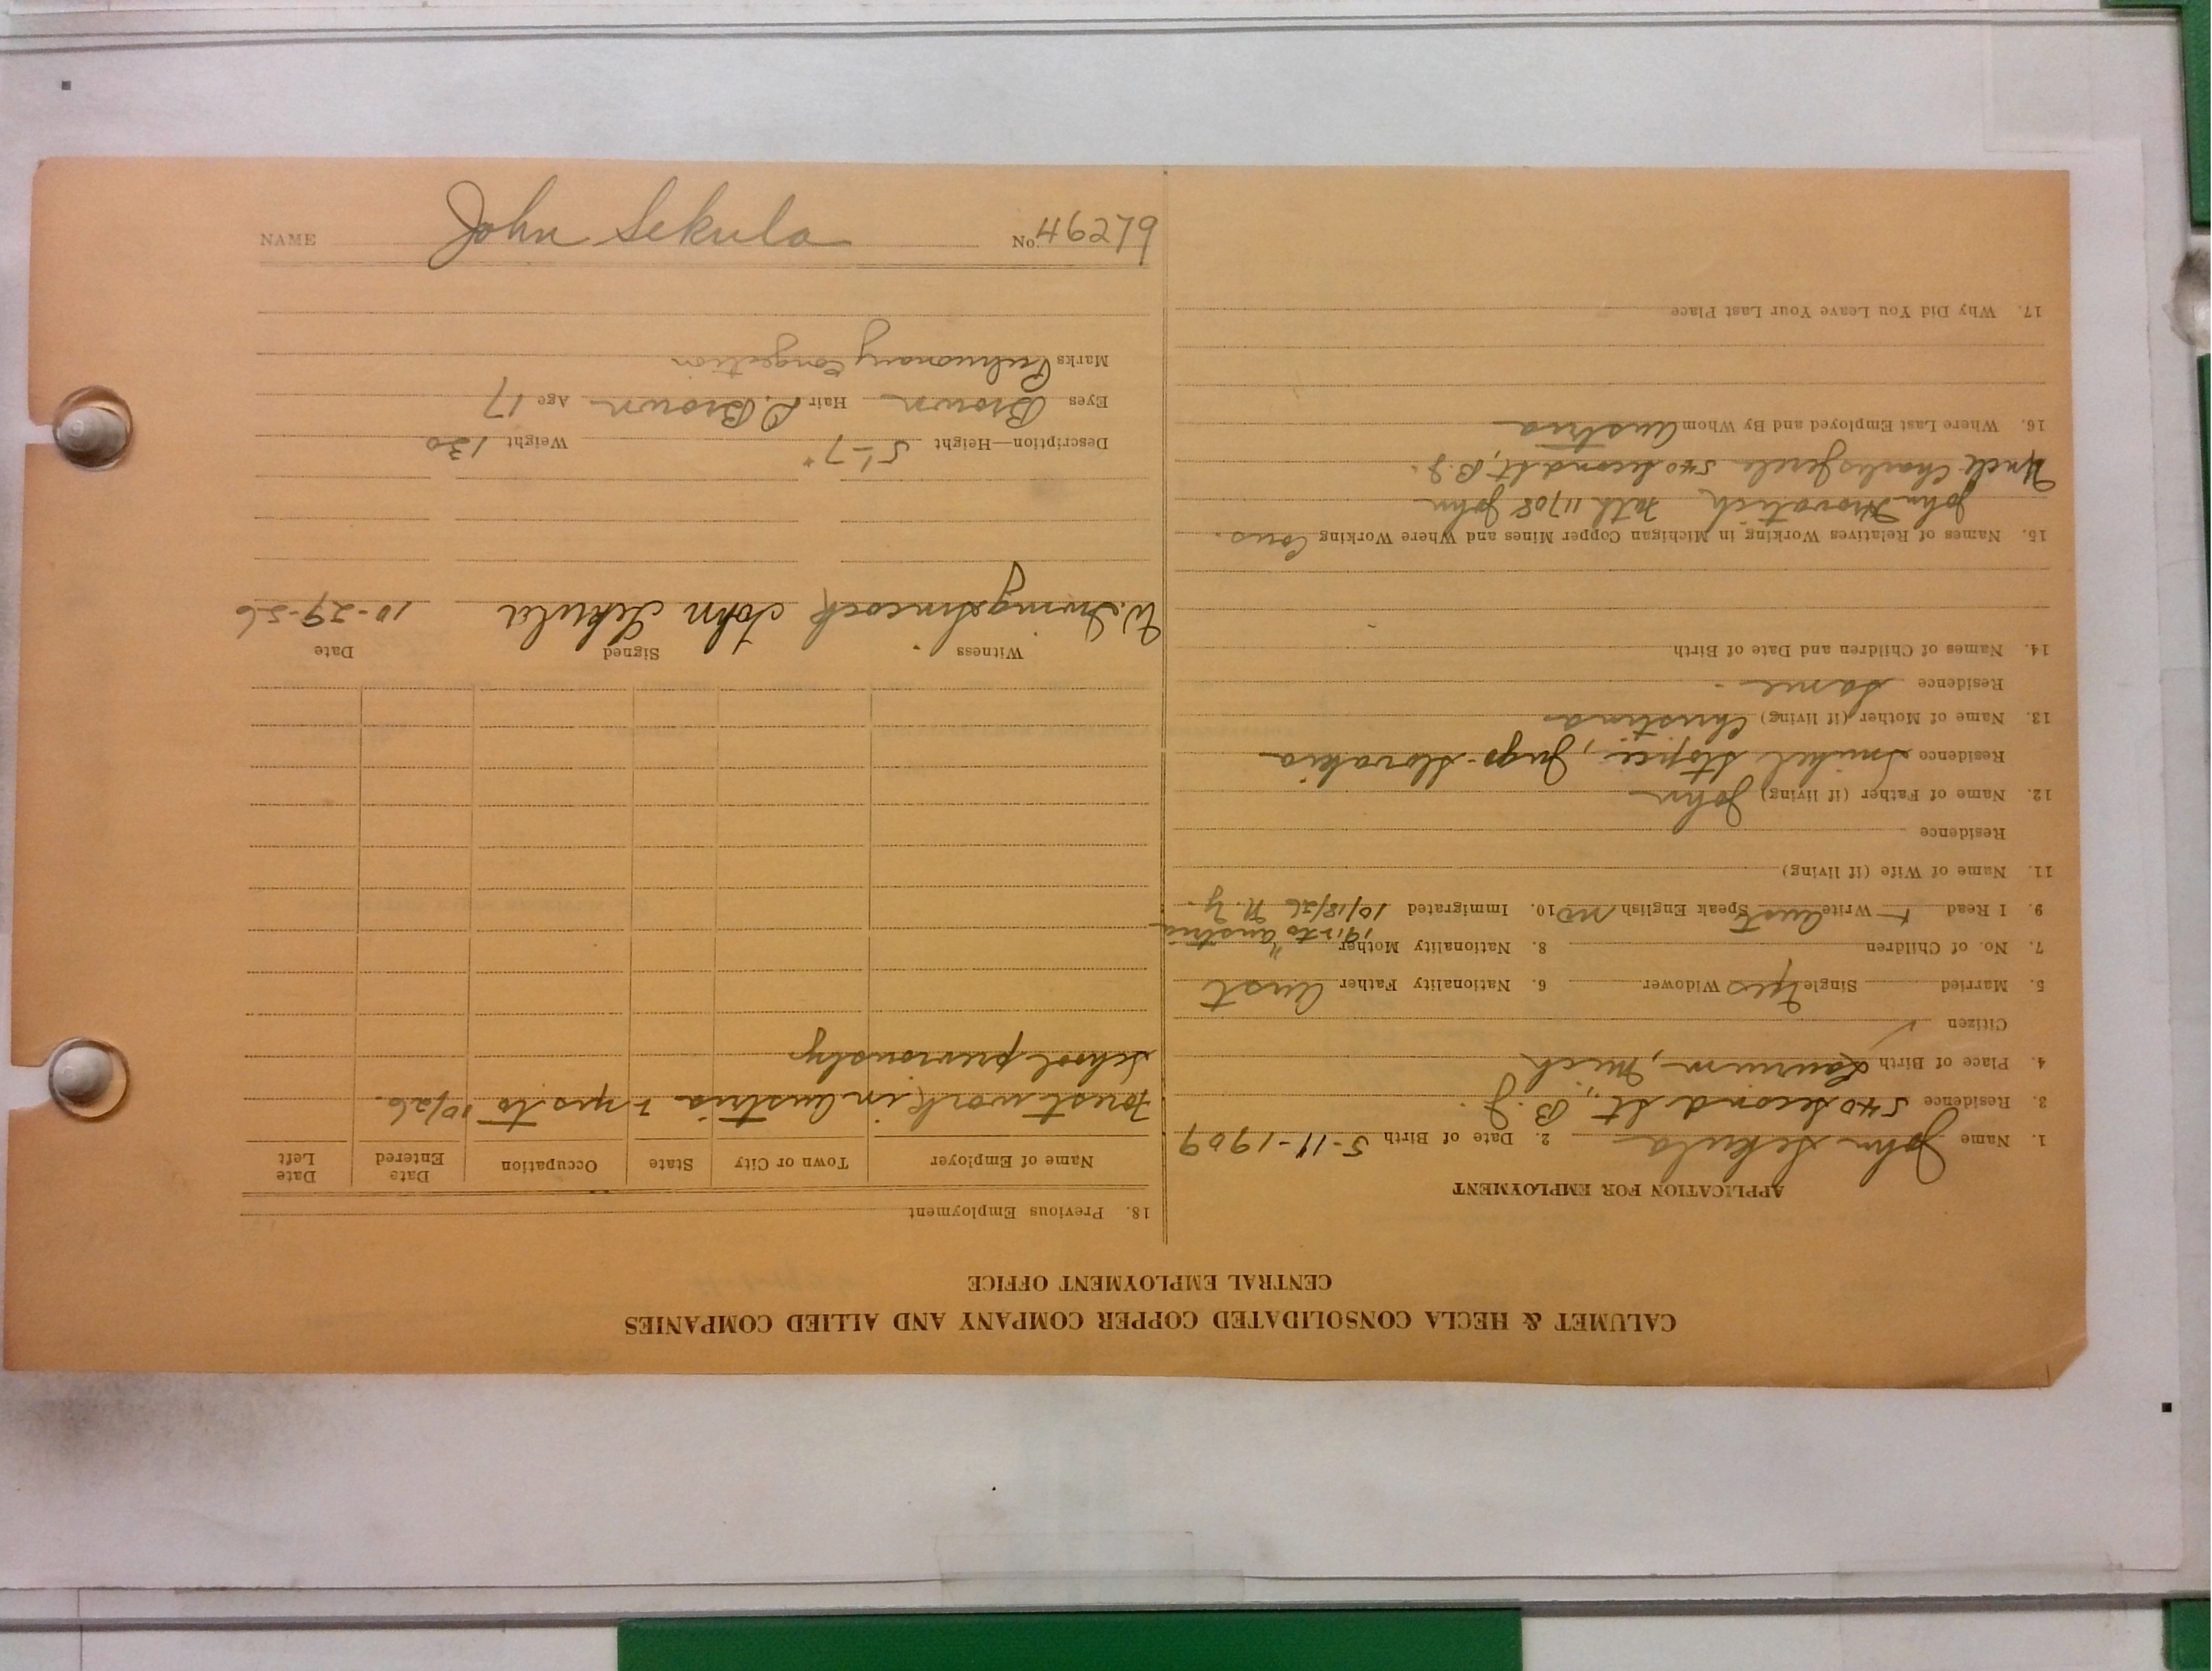 CALUMET & HECLA CONSOLIDATED COPPER COMPANY AND ALLIED COMPANIES
CENTRAL EMPLOYMENT OFFICE
APPLICATION FOR EMPLOYMENT
1. Name John Sekula 2. Date of Birth 5-11-1909
3. Residence 540 Second St., B.J.
4. Place of Birth Laurium, Mich
Citizen ✓
5. Married Single yes Widower 6. Nationality Father Aust
7. No. of Children 8. Nationality Mother "
1912 to Austria
9. I Read + Write Aust Speak English no 10. Immigrated 10/18/26 N.Y.
11. Name of Wife (if living)
Residence
12. Name of Father (if living) John
Residence Jugo-Slovakia
13. Name of Mother (if living) Christina
Residence Same
14. Names of Children and Date of Birth
15. Names of Relatives Working in Michigan Copper Mines and Where Working Cous.
John 11708 John
Uncle Charles 540 Second St, B.J.
16. Where Last Employed and By Whom Austria
17. Why Did You Leave Your Last Place
18. Previous Employment
Name of Employer Town or City State Occupation Date Entered Date Left
Forest work in Austria 2 yrs to 10/26.
School previously
Witness Signed Date
John Sekula 10-29-26
Description—Height 5'-7" Weight 130
Eyes Brown Hair D. Brown Age 17
Marks Pulmonary Congestion
NAME John Sekula No. 46279